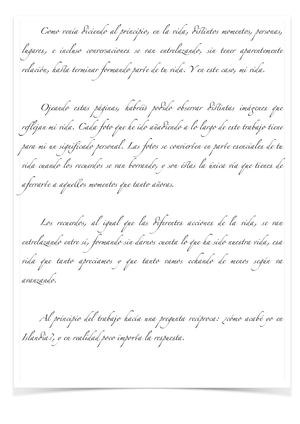 Como venía diciendo al principio, en la vida, distintos momentos, personas,
lugares, e incluso conversaciones se van entrelazando, sin tener aparentemente
relación, hasta terminar formando parte de tu vida. Y en este caso, mi vida.
Ojeando estas páginas, habréis podido observar distintas imágenes que
reflejan mi vida. Cada foto que he ido añadiendo a lo largo de este trabajo tiene
para mi un significado personal. Las fotos se convierten en parte esencial en tu
vida cuando los recuerdos se van borrando, y son éstas la única vía que tienes de
aferrarte a aquellos momentos que tanto añoras.
Los recuerdos, al igual que las diferentes acciones de la vida, se van
entrelazando entre sí, formando sin darnos cuenta lo que ha sido nuestra vida, esa
vida que tanto apreciamos y que tanto vamos echando de menos según va
avanzando.
Al principio del trabajo hacía una pregunta recíproca: ¿cómo acabé yo en
Islandia?, y en realidad poco importa la respuesta.